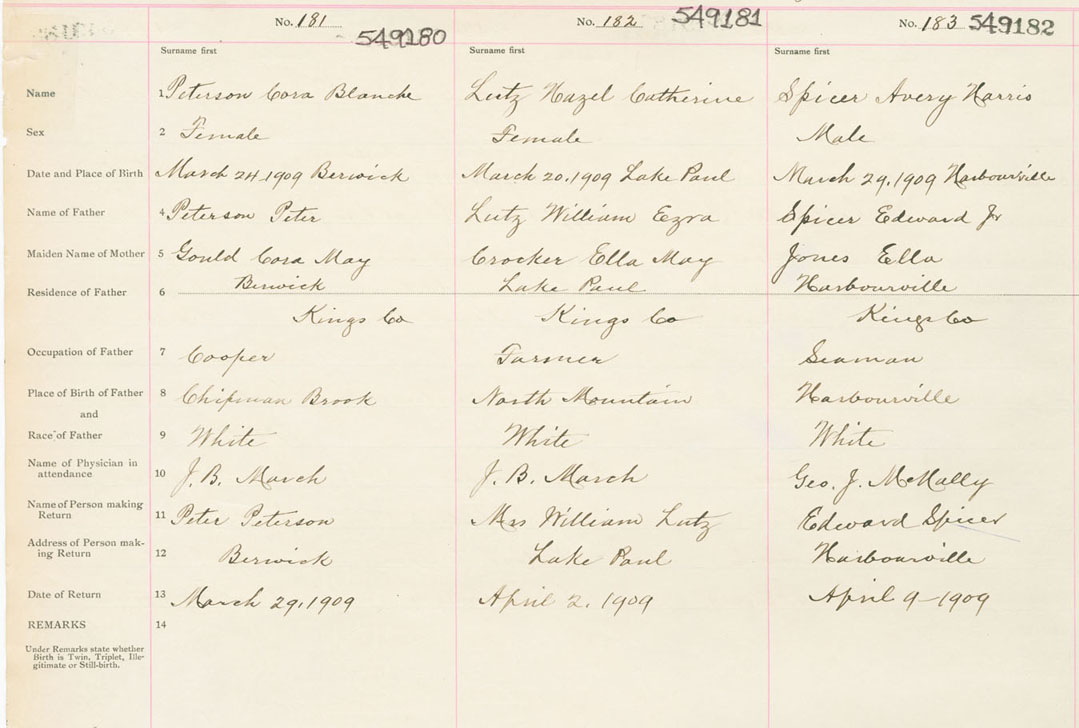 No. 181 No. 182 549181 No. 183 549182
549180
Surname first Surname first Surname first
Name 1 Peterson Cora Blanche Lutz Hazel Catherine Spicer Avery Harris
Sex 2 Female Female Male
Date and Place of Birth March 24 1909 Berwick March 20, 1909 Lake Paul March 29, 1909 Harbourville
Name of Father 4 Peterson Peter Lutz William Ezra Spicer Edward Jr
Maiden Name of Mother 5 Gould Cora May Crocker Ella May Jones Ella
Berwick Lake Paul Harbourville
Residence of Father 6
Kings Co Kings Co Kings Co
Occupation of Father 7 Cooper Farmer Seaman
Place of Birth of Father 8 Chipman Brook North Mountain Harbourville
and
Race of Father 9 White White White
Name of Physician in
attendance 10 J. B. March J. B. March Geo. J. McNally
Name of Person making
Return 11 Peter Peterson Mrs William Lutz Edward Spicer
Address of Person mak-
ing Return 12 Berwick Lake Paul Harbourville
Date of Return 13 March 29, 1909 April 2, 1909 April 9-1909
REMARKS 14
Under Remarks state whether
Birth is Twin, Triplet, Ille-
gitimate or Still-birth.